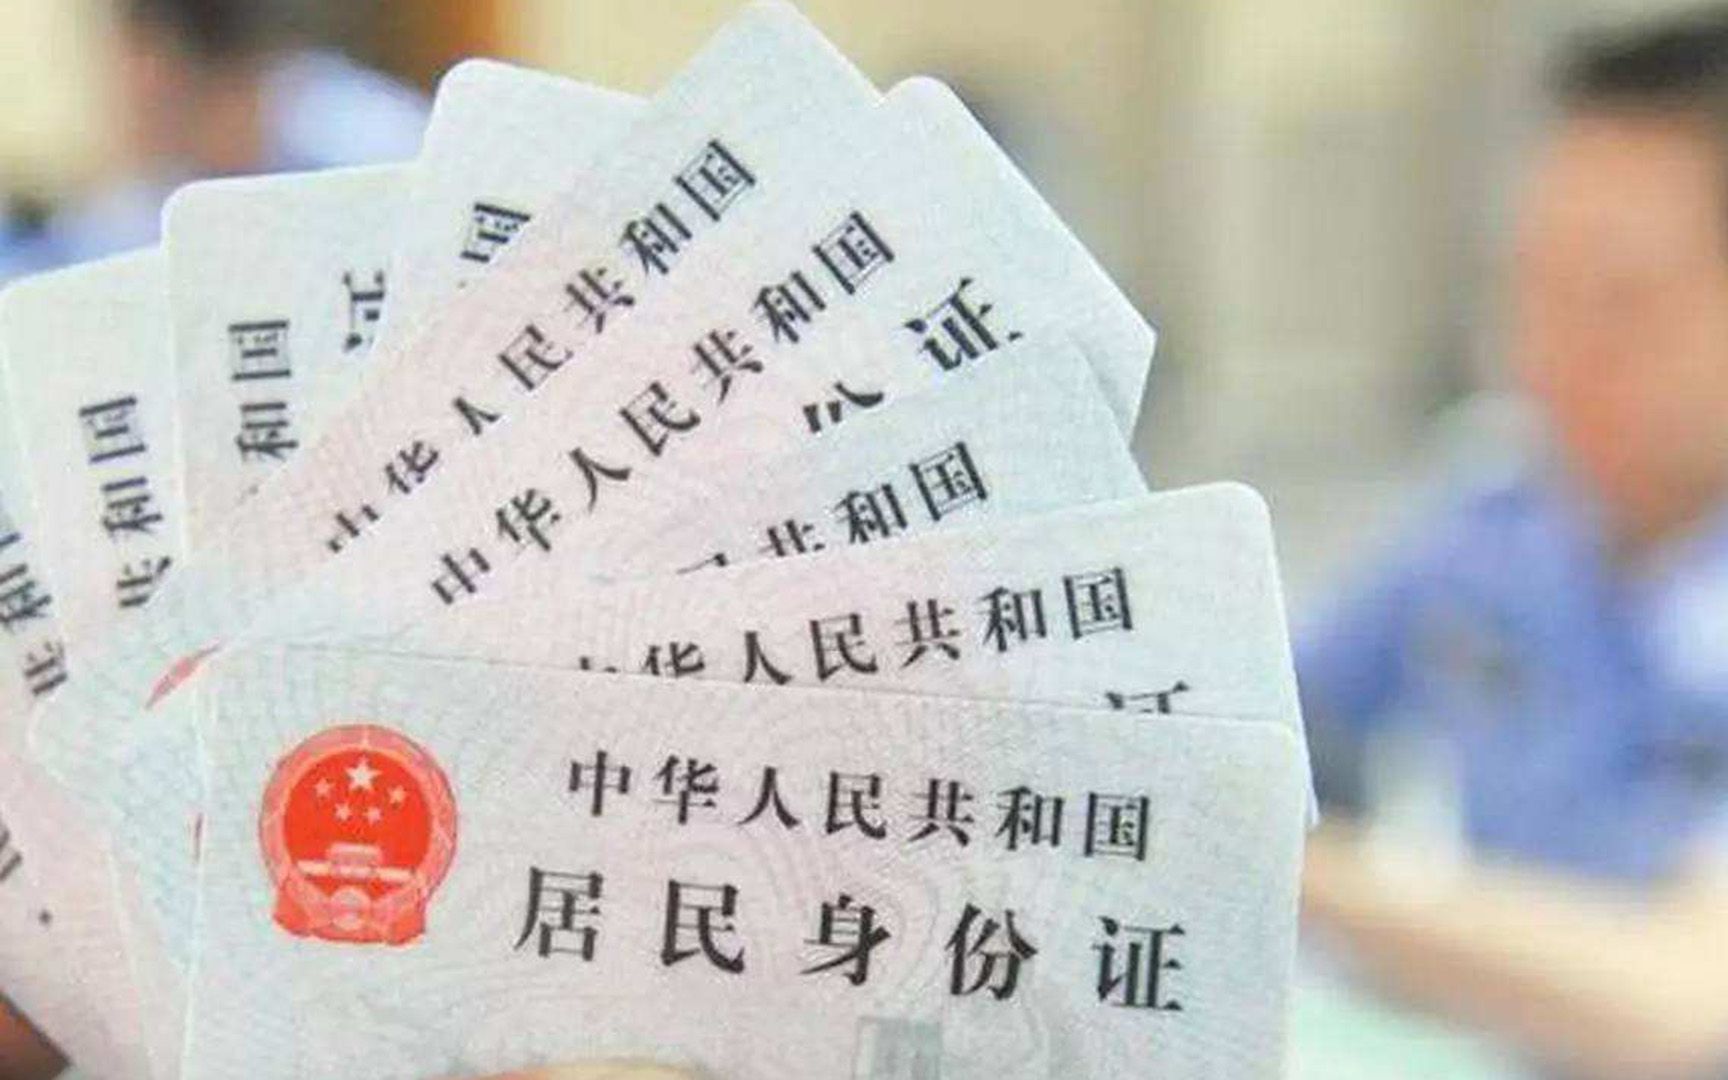 国
和国
证
共和国
中华人民共和国
中华人民共和国
证
共和国
华人民共和国
证
中华人民共和国
居民身份证